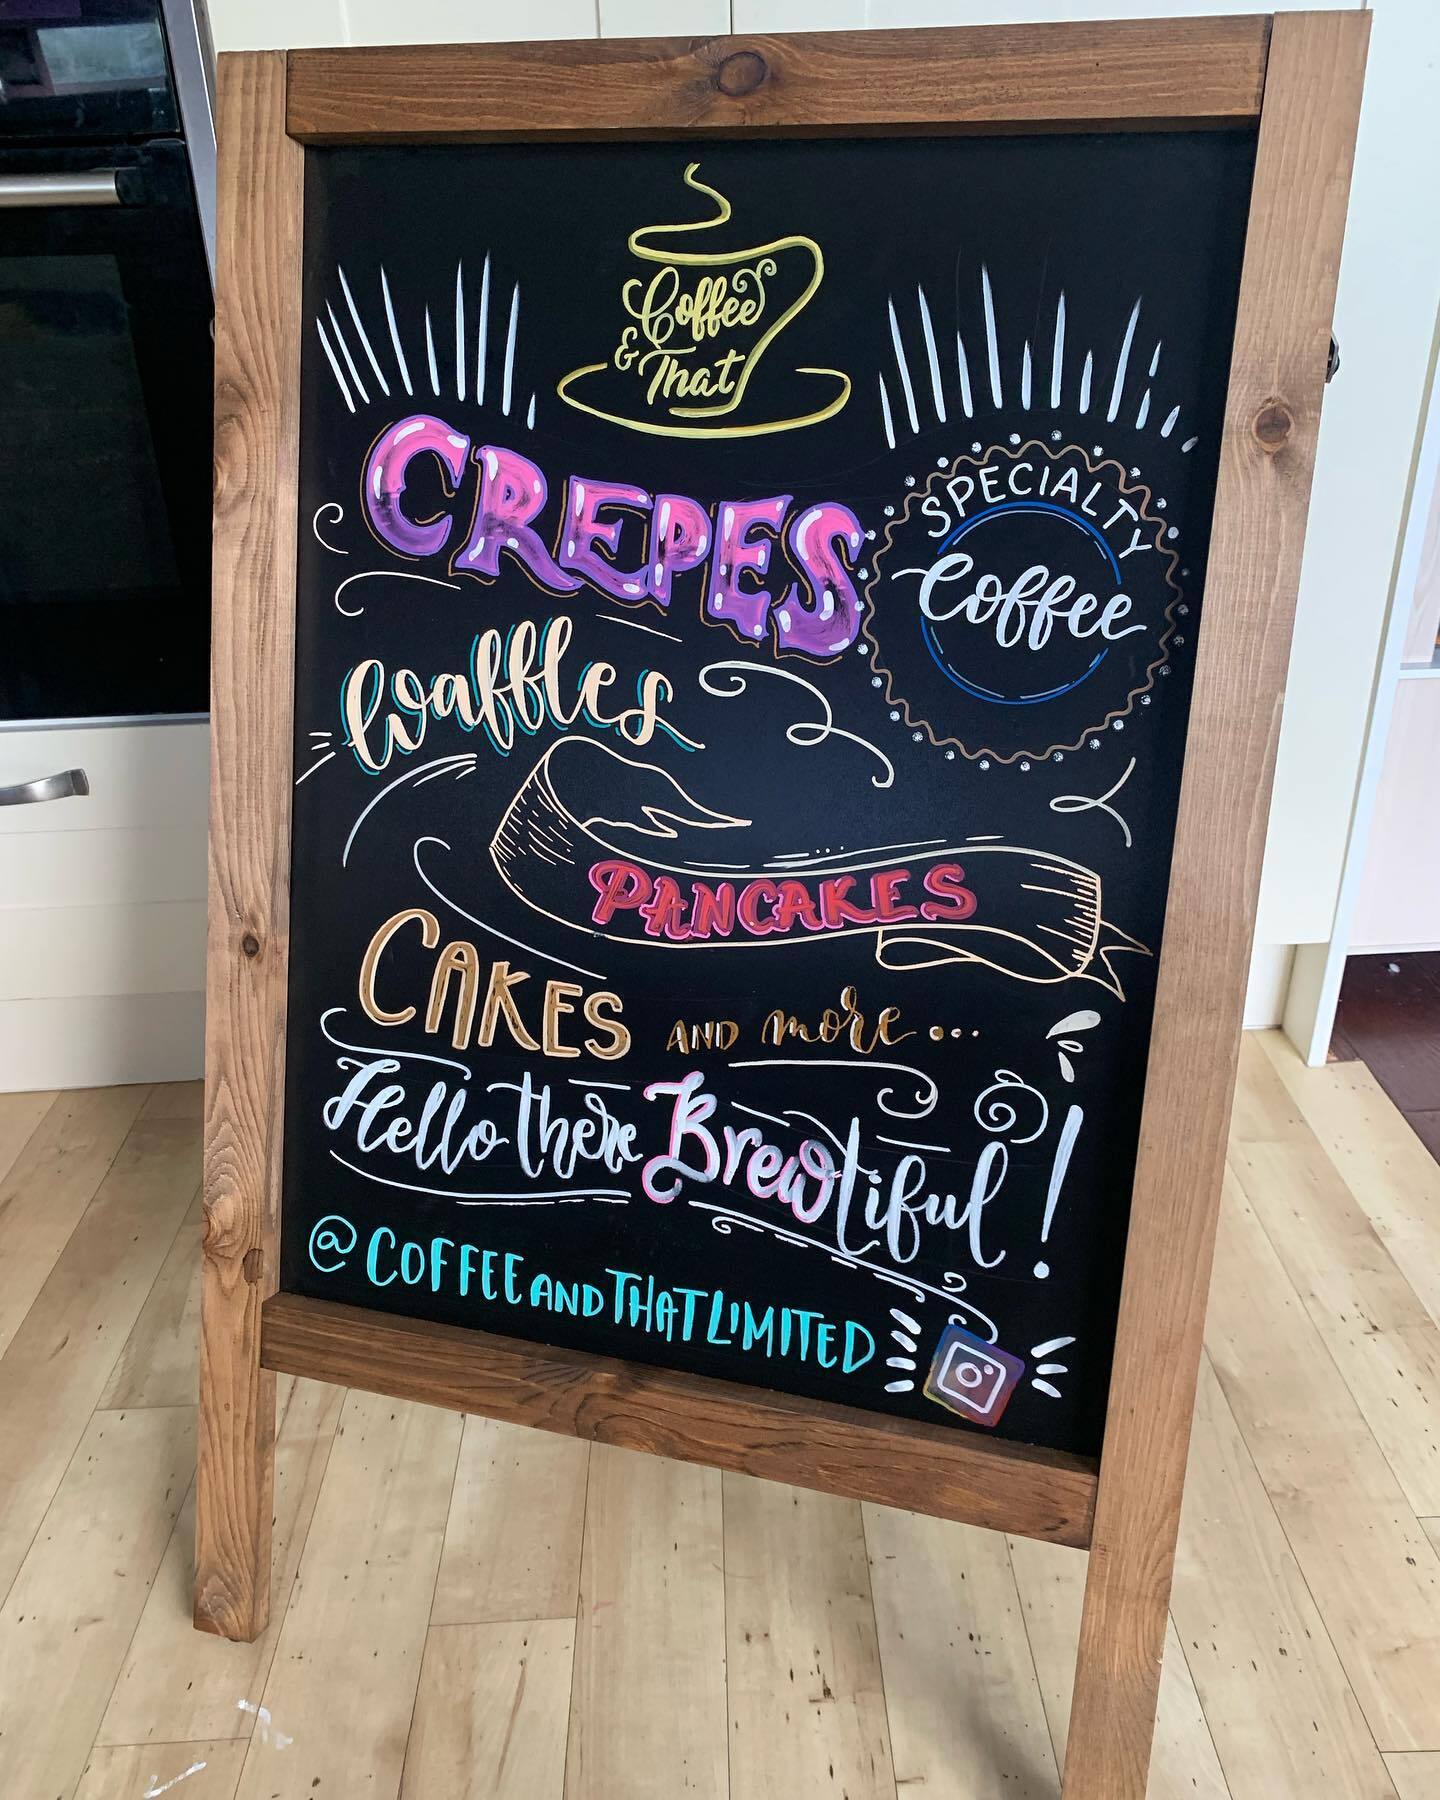 Coffee
& That
CREPES
SPECIALTY
Coffee
Waffles
PANCAKES
CAKES AND more...
Hello there Brewtiful!
@COFFEEANDTHATLIMITED